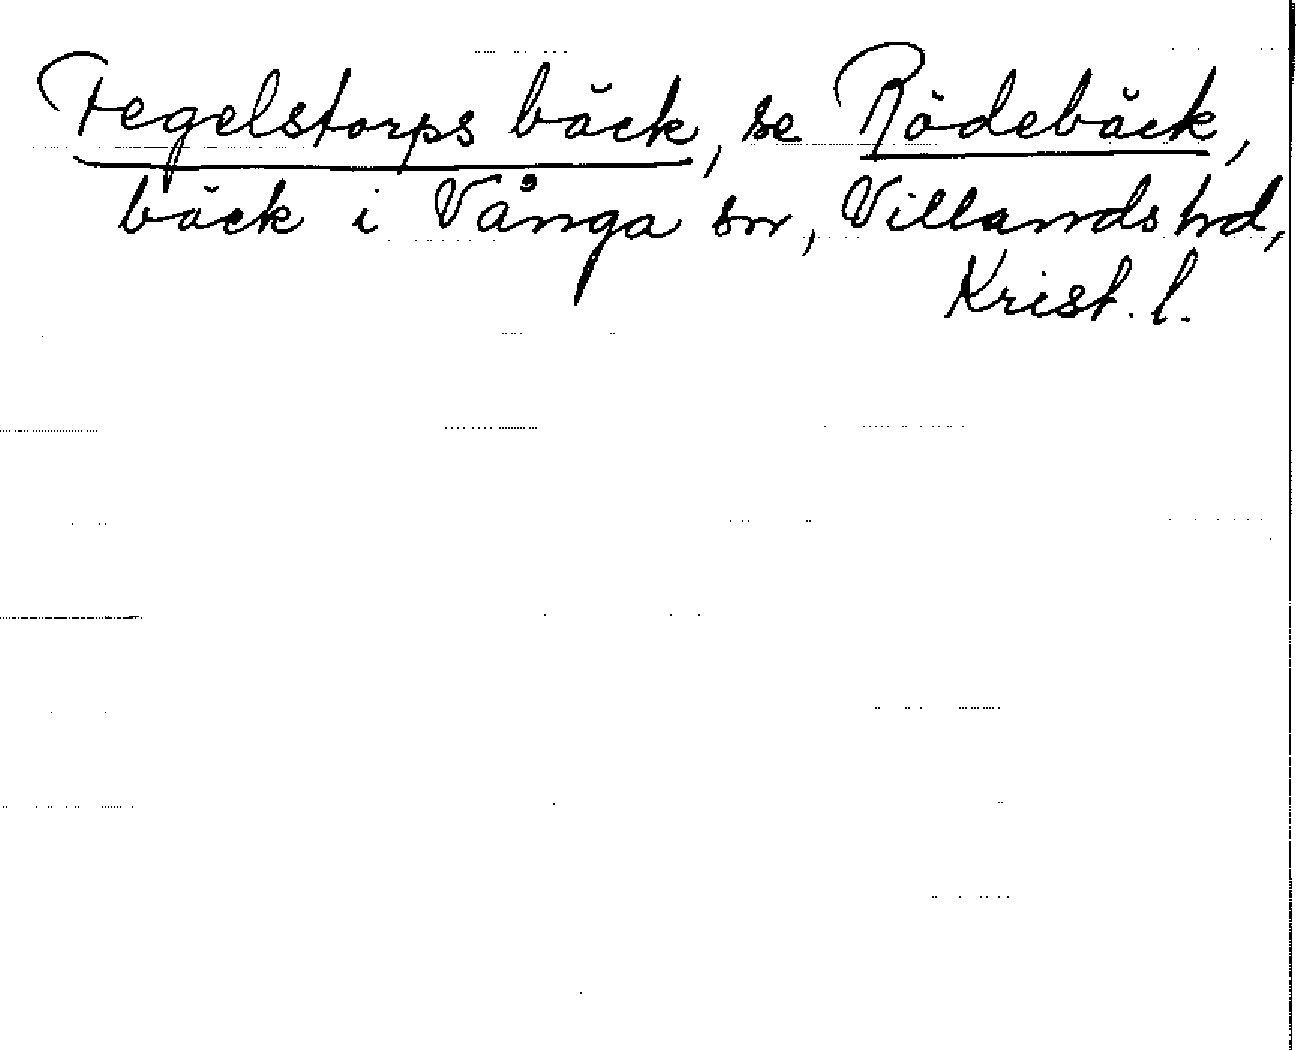 Tegelstorps bäck, se Rödebäck,
bäck i Vånga sn, Villands hd,
Krist. l.